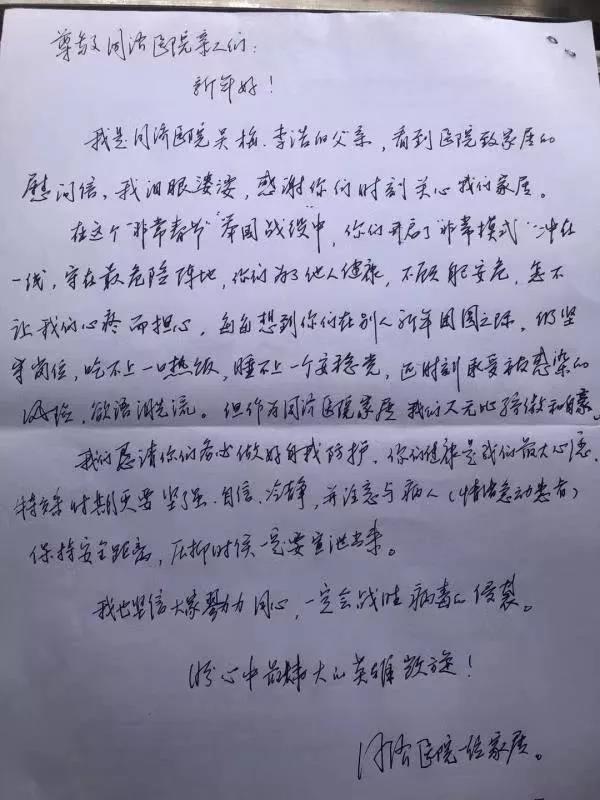 尊敬同济医院亲人们：
新年好！
我是同济医院吴梅、李浩的父亲，看到医院致家属的
慰问信，我泪眼婆婆，感谢你们时刻关心我们家属。
在这个"非常春节"举国战役中，你们开启了"非常模式"冲在
一线，守在最危险阵地，你们为了他人健康，不顾自己安危，怎不
让我们心疼而担心，每每想到你们在别人新年团圆之际，仍坚
守岗位，吃不上一口热饭，睡不上一个安稳觉，还时刻承受被感染的
风险，欲语泪先流。但作为同济医院家属我们又无比骄傲和自豪。
我们恳请你们务必做好自我防护，你们健康是我们最大心愿，
特殊时期更要坚强、自信、冷静，并注意与病人（情绪急动患者）
保持安全距离，压抑时候一定要宣泄出来。
我也坚信大家勠力同心，一定会战胜病毒的侵袭。
盼心中最伟大的英雄凯旋！
同济医院一经家属。